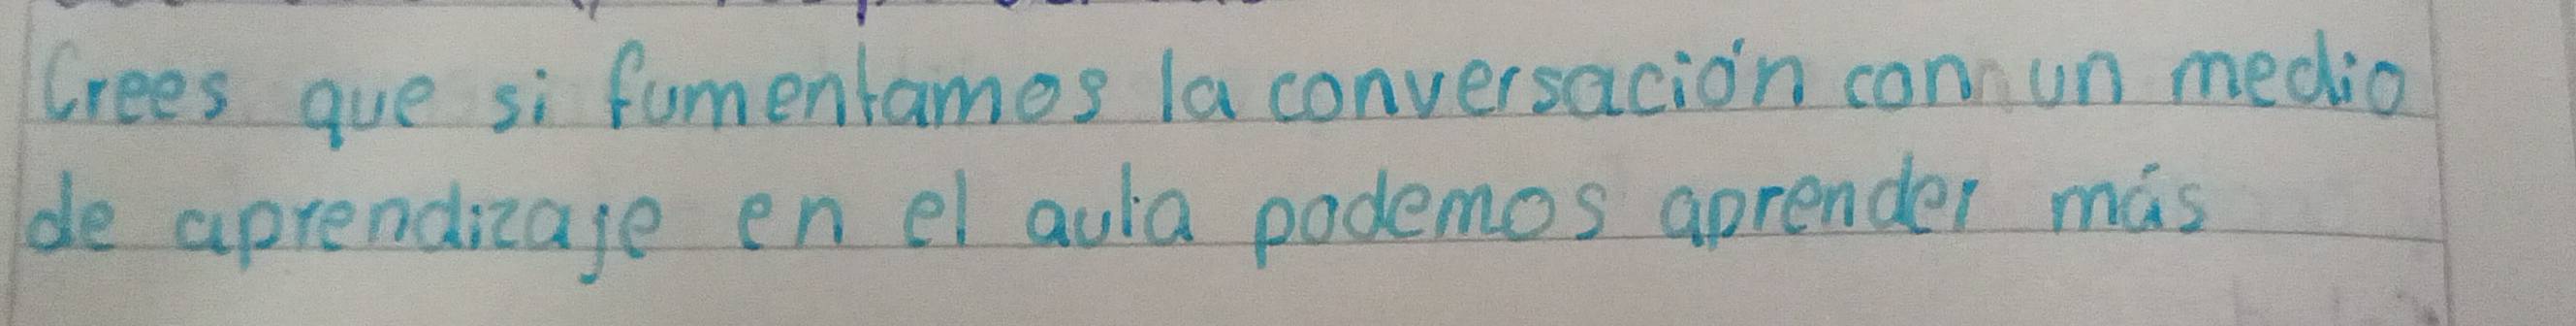 Crees que si fumentamos la conversación con un medio
de aprendizaje en el aula podemos aprender más